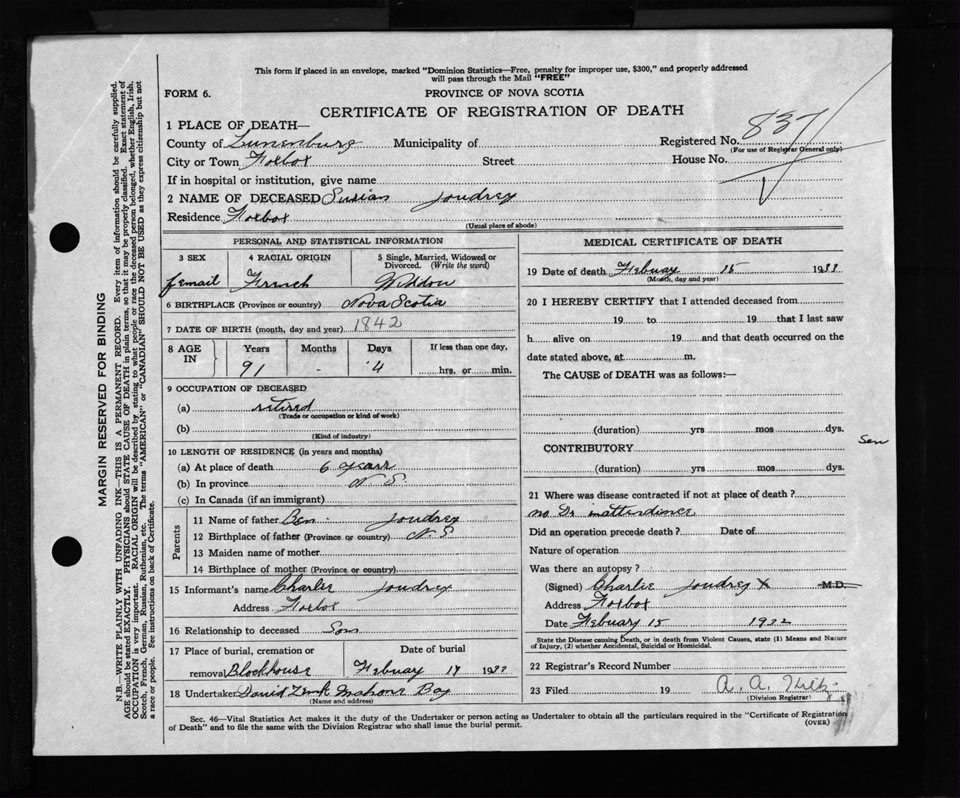 This form if placed in an envelope, marked "Dominion Statistics—Free, penalty for improper use, $300," and properly addressed
will pass through the Mail "FREE"
FORM 6.
PROVINCE OF NOVA SCOTIA
CERTIFICATE OF REGISTRATION OF DEATH
837
1 PLACE OF DEATH—
County of Lunenburg Municipality of Registered No.
(For use of Registrar General only)
City or Town Foxbox Street House No.
If in hospital or institution, give name
2 NAME OF DECEASED Susian Joudrey
Residence Foxbox
(Usual place of abode)
PERSONAL AND STATISTICAL INFORMATION
3 SEX 4 RACIAL ORIGIN 5 Single, Married, Widowed or
Divorced. (Write the word)
femail French Widdow
6 BIRTHPLACE (Province or country) Nova Scotia
7 DATE OF BIRTH (month, day and year) 1842
8 AGE IN Years Months Days If less than one day,
91 - 4 hrs. or min.
9 OCCUPATION OF DECEASED
(a) retired
(Trade or occupation or kind of work)
(b)
(Kind of industry)
10 LENGTH OF RESIDENCE (in years and months)
(a) At place of death 6 years
(b) In province N S
(c) In Canada (if an immigrant)
Parents
11 Name of father Ben Joudrey
12 Birthplace of father (Province or country) N. S
13 Maiden name of mother
14 Birthplace of mother (Province or country)
15 Informant's name Charlie Joudrey
Address Foxbox
16 Relationship to deceased Son
17 Place of burial, cremation or Date of burial
removal Blockhouse Febuary 17 193
18 Undertaker David Zink Mahone Bay
(Name and address)
MEDICAL CERTIFICATE OF DEATH
19 Date of death Febuary 15 193
(Month, day and year)
20 I HEREBY CERTIFY that I attended deceased from
19 to 19 that I last saw
h alive on 19 and that death occurred on the
date stated above, at m.
The CAUSE of DEATH was as follows:—
(duration) yrs mos dys.
Sen
CONTRIBUTORY
(duration) yrs mos dys.
21 Where was disease contracted if not at place of death?
no Dr in attendince
Did an operation precede death? Date of
Nature of operation
Was there an autopsy?
(Signed) Charlie Joudrey X M.D.
Address Foxbox
Date Febuary 15 193
State the Disease causing Death, or in death from Violent Causes, state (1) Means and Nature
of Injury, (2) whether Accidental, Suicidal or Homicidal.
22 Registrar's Record Number
23 Filed 19 A. A.
(Division Registrar)
Sec. 46—Vital Statistics Act makes it the duty of the Undertaker or person acting as Undertaker to obtain all the particulars required in the "Certificate of Registration
of Death" and to file the same with the Division Registrar who shall issue the burial permit.
(OVER)
MARGIN RESERVED FOR BINDING
N.B.—WRITE PLAINLY WITH UNFADING INK—THIS IS A PERMANENT RECORD. Every item of information should be carefully supplied.
AGE should be stated EXACTLY. PHYSICIANS should STATE CAUSE OF DEATH in plain terms, so that it may be properly classified. Exact statement of
OCCUPATION is very important. RACIAL ORIGIN will be described by stating to what people or race the deceased person belonged, whether English, Irish,
Scotch, French, German, Russian, Ruthenian, etc. The terms "AMERICAN" or "CANADIAN" SHOULD NOT BE USED as they express citizenship but not
a race or people. See instructions on back of Certificate.